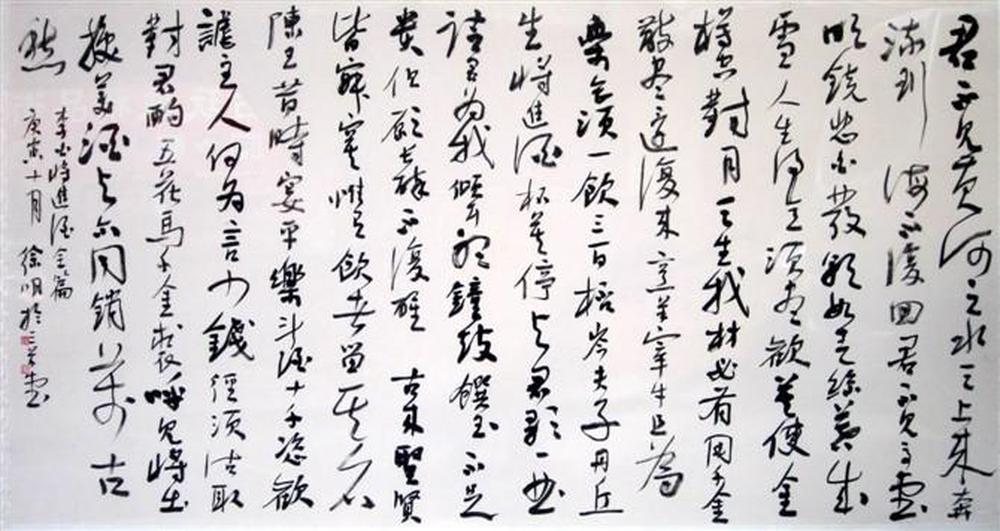 君不见黄河之水天上来奔
流到海不復回君不见高堂
明镜悲白发朝如青丝暮成
雪人生得意须尽欢莫使金
樽空對月天生我材必有用千金
散尽还復来烹羊宰牛且為
樂会须一飲三百杯岑夫子丹丘
生將進酒杯莫停与君歌一曲
请君为我倾耳听鐘鼓饌玉不足
贵但愿长醉不復醒古来聖賢
皆寂寞惟有飲者留其名
陳王昔時宴平樂斗酒十千恣歡
謔主人何为言少錢径须沽取
對君酌五花馬千金裘呼兒將出
换美酒与尔同銷万古
愁
李白將進酒全篇
庚寅十月徐明於三堂